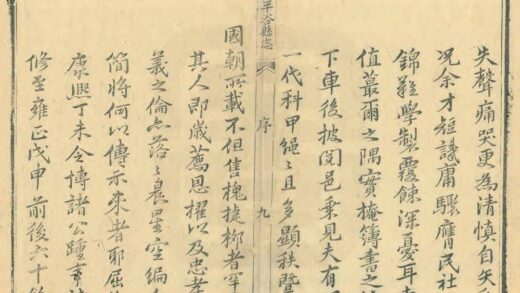 失聲痛哭更為清慎自矢
况余才短識庸驟膺民社
錦難學製覆餗深憂耳
值蕞爾之隅實掩簿書之
下車後披閱邑乘見夫有
一代科甲繩〻且多顯秩暨
平谷縣志 序 九
國朝所載不但售槐捷柳者罕
其人即歲薦恩擢以及忠孝
義之倫亦落〻晨星空編
簡將何以傳示來者耶屈
康熙丁未令傳諸公踵事
修至雍正戊申前後六十